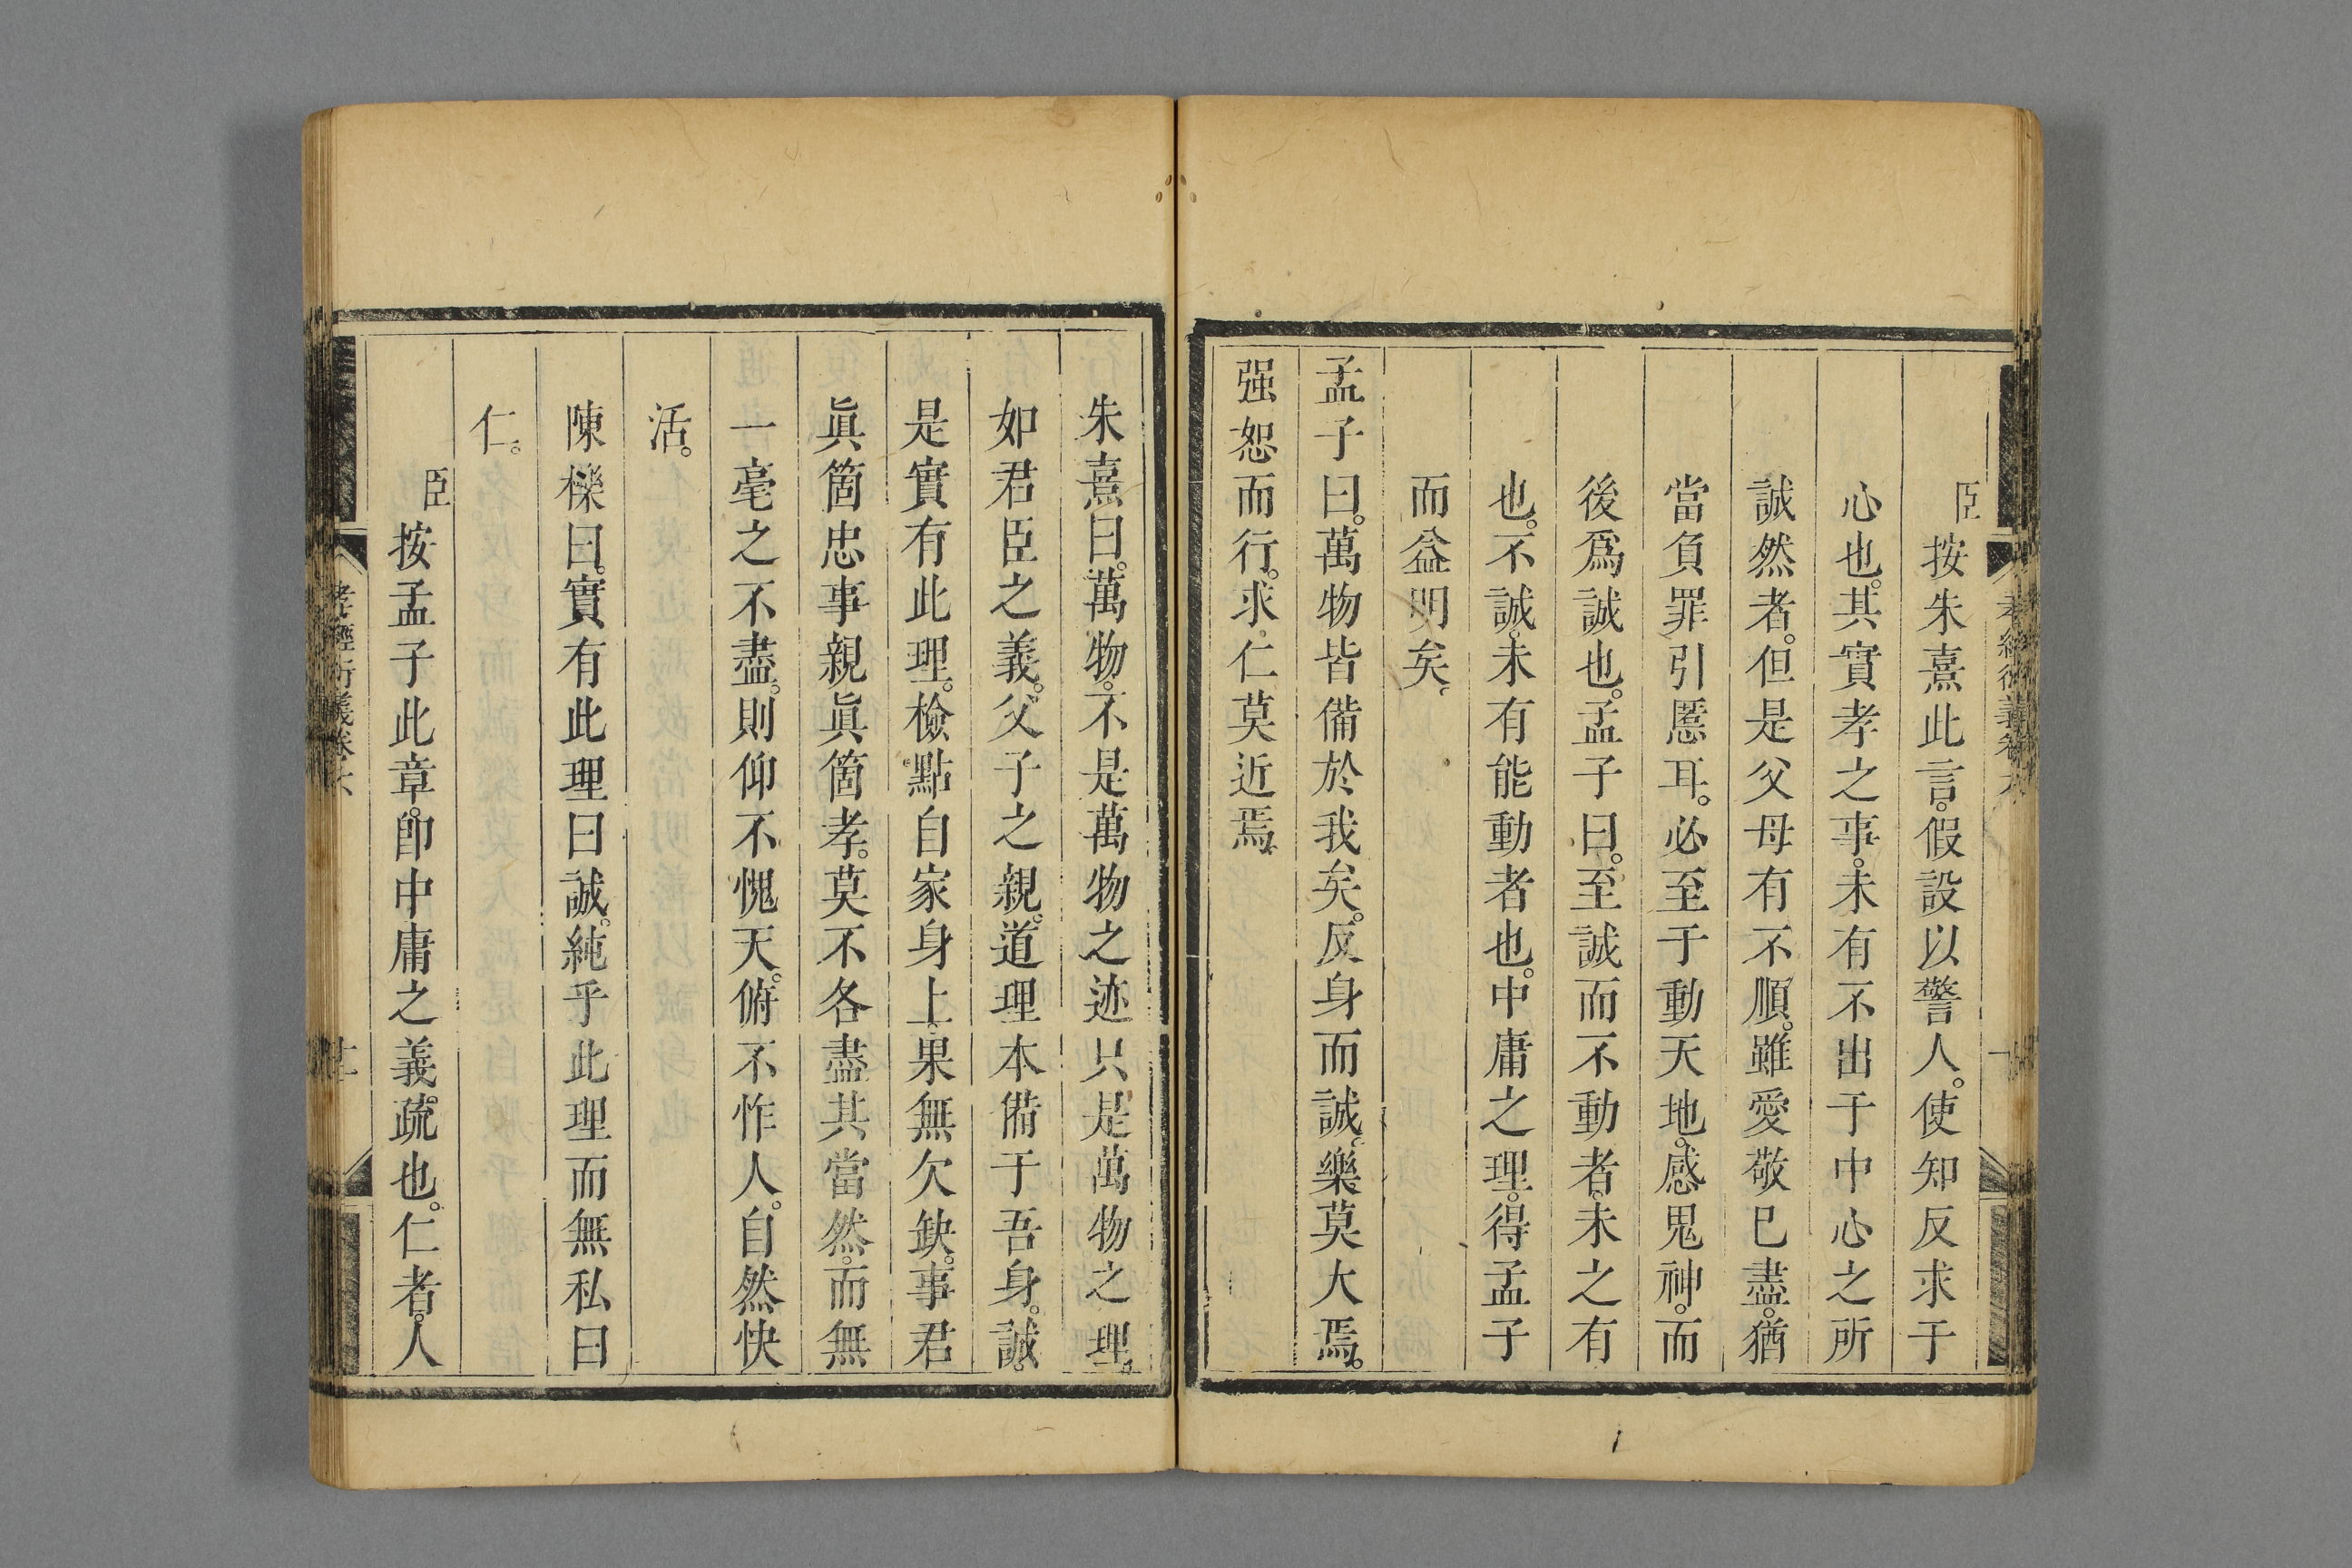 臣按朱熹此言。假設以警人。使知反求于
心也。其實孝之事。未有不出于中心之所
誠然者。但是父母有不順。雖愛敬已盡。猶
當負罪引慝耳。必至于動天地。感鬼神。而
後爲誠也。孟子曰。至誠而不動者。未之有
也。不誠。未有能動者也。中庸之理。得孟子
而益明矣。
孟子曰。萬物皆備於我矣。反身而誠。樂莫大焉。
强恕而行。求仁莫近焉。
朱熹曰。萬物。不是萬物之迹。只是萬物之理。
如君臣之義。父子之親。道理本備于吾身。誠
是實有此理。檢點自家身上。果無欠缺。事君
眞箇忠事親眞箇孝。莫不各盡其當然。而無
一毫之不盡。則仰不愧天。俯不怍人。自然快
活。
陳櫟曰。實有此理曰誠。純乎此理而無私曰
仁。
臣按孟子此章。卽中庸之義疏也。仁者。人
孝經衍義卷六